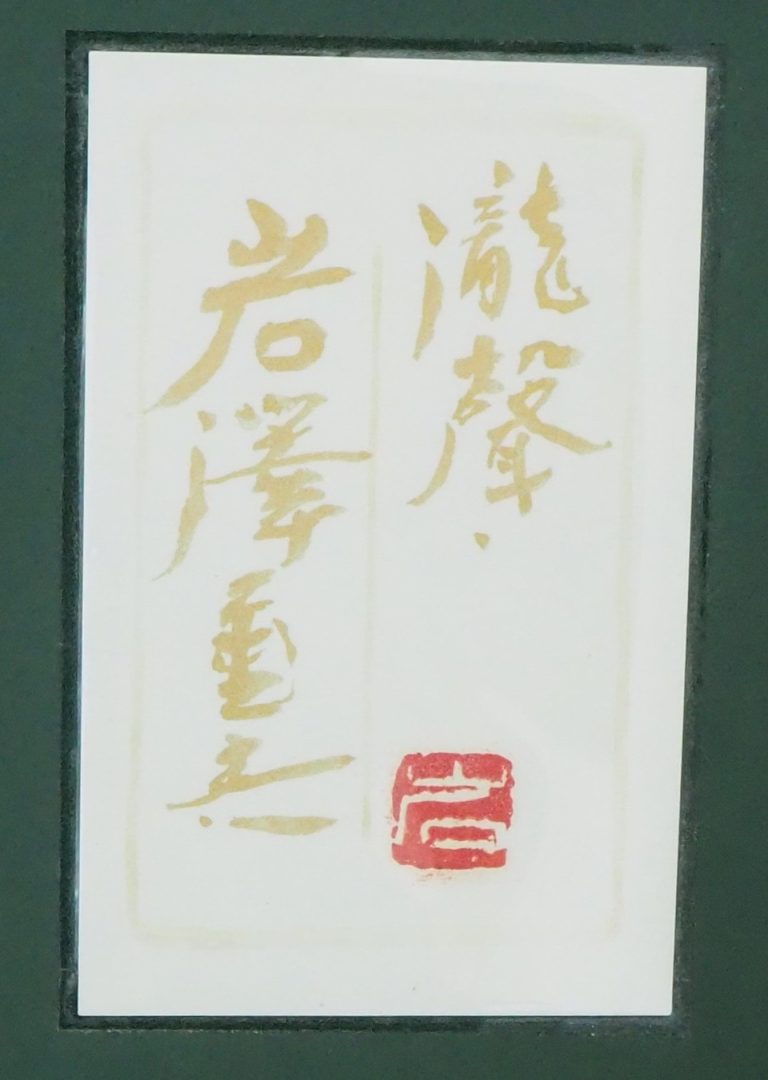 瀧聲
岩澤重夫
岩